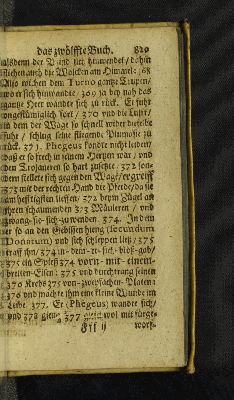 das zwölffte Buch. 829
allsdenn der Wind sich hinwendet / dahin
fliehen auch die Wolcken am Himmel: 368
Also wichen dem Turno gantze Trupen /
wo er sich hinwandte / 369 ja bey nah das
gantze Heer wandte sich zu rück. Er fuhr
ungestümiglich fort / 370 und die Lufft /
in dem der Wage so schnell wider dieselbe
fuhr / schlug seine fliegende Plumasie zu
rück. 371. Phegeus konnte nicht leiden /
daß er so frech in seinem Hertzen war / und
den Trojanern so hart zusetzte. 372 son-
dern stellete sich gegen den Wage / ergriff
373 mit der rechten Hand die Pferde / da sie
am hefftigsten lieffen / 372 beym Zügel an
ihren schaumenden 373 Mäulern / und
zwang sie sich zu wenden. 374. Indem
er so an den Gebissen hieng (secundum
Donatum) und sich schleppen ließ / 375
traff ihn / 374 in dem er sich bloß gab /
375 ein Spieß 374 vorn mit einem
breiten Eisen: 375 und durchtrang seinen
Krebs 375 von zweyfachen Platen:
376 und machte ihm eine kleine Wunde im
Leibe. 377. Er (Phegeus) wandte sich /
und 378 gieng 377 wol mit fürge-
Fff ij worf-